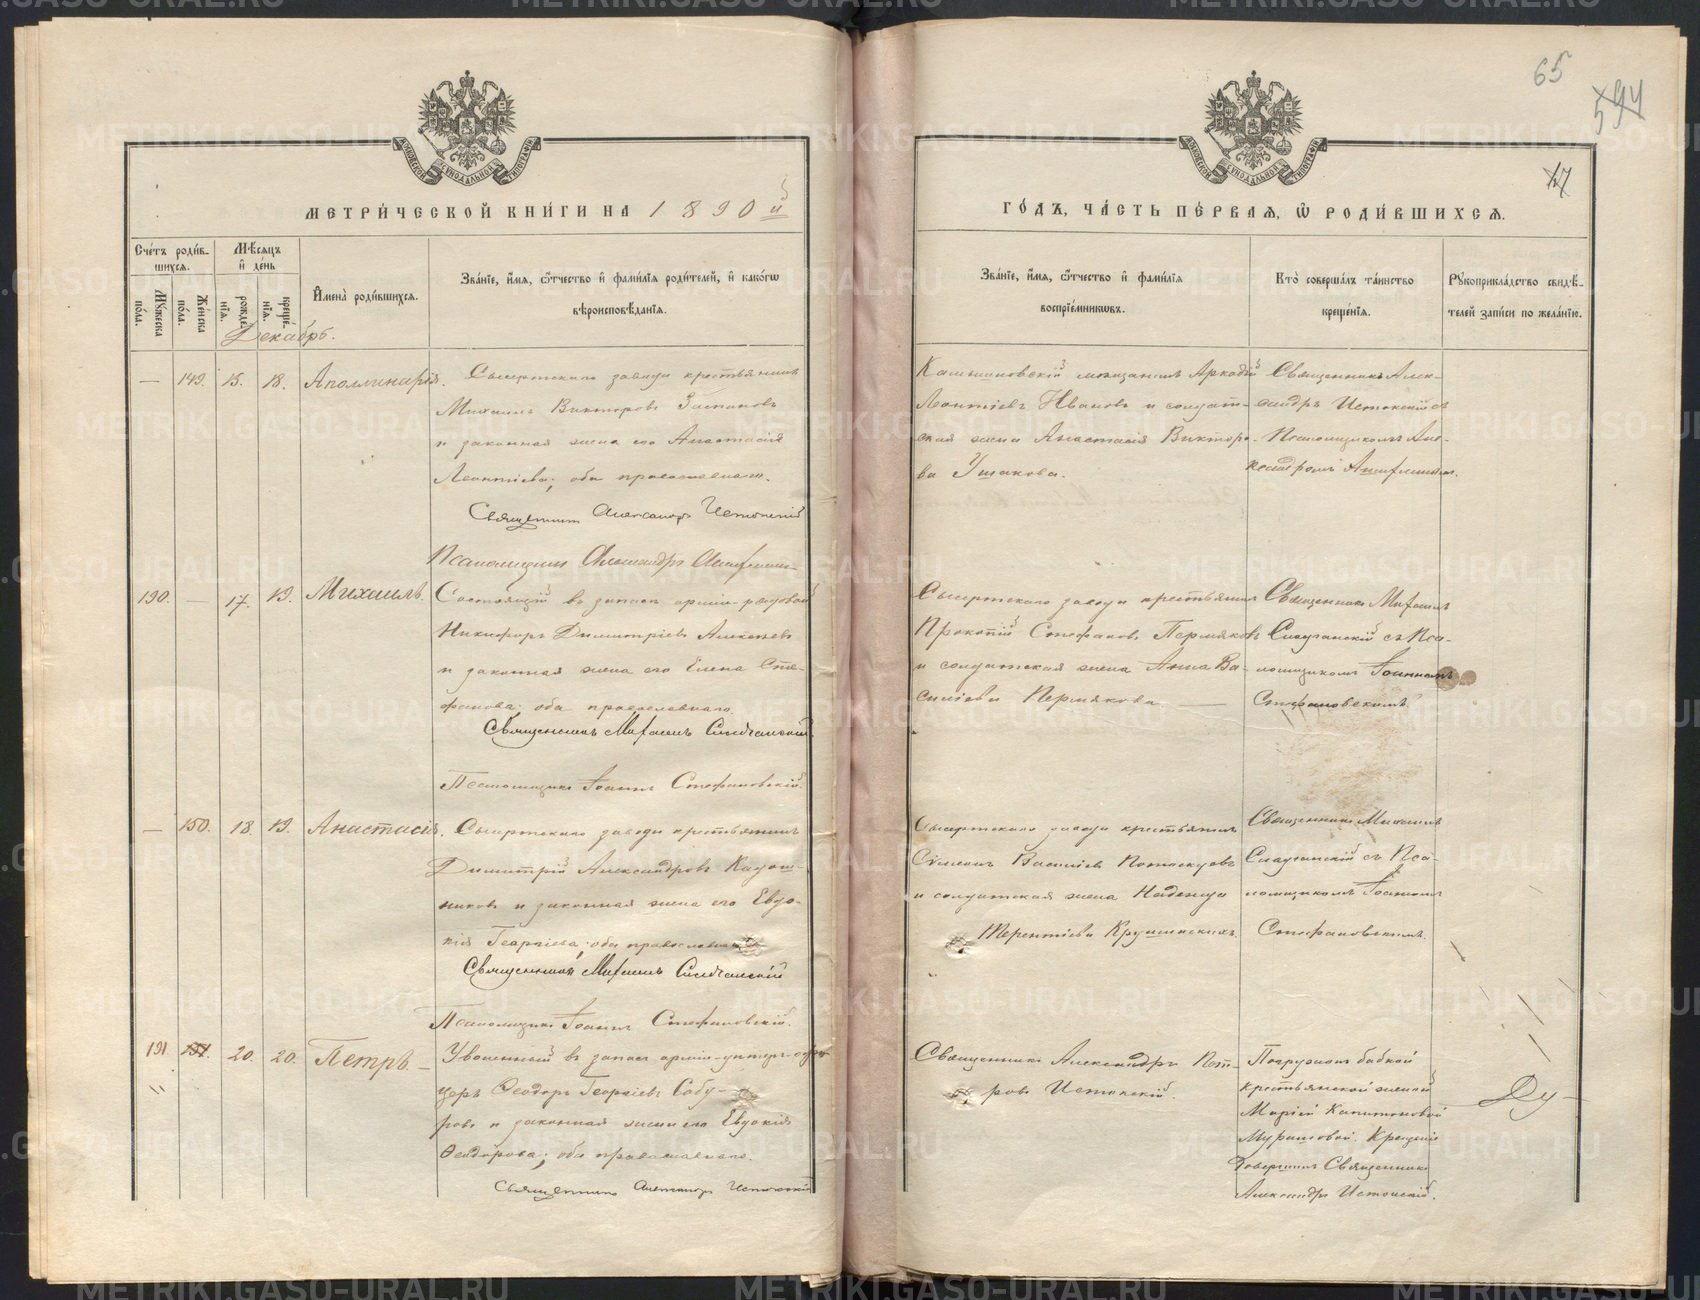 65
594
47
МЕТРИ́ЧЕСКОЙ КНИ́ГИ НА 1890 й
ГО́ДЪ, ЧА́СТЬ ПЕ́РВАЯ, Ѡ РОДИ́ВШИХСЯ.
Сче́тъ роди́в-
шихся.
Мꙋ́жеска по́ла.
Же́нска по́ла.
Мѣ́сяцъ и де́нь
рожде́нїя.
креще́нїя.
Имена̀ роди́вшихся.
Зва́нїе, и́мя, ѻ́тчество и фами́лїя роди́телей, и како́гѡ
вѣроисповѣ́данїя.
Зва́нїе, и́мя, ѻ́тчество и фами́лїя
воспрїе́мникѡвъ.
Кто̀ соверша́лъ та́инство
креще́нїя.
Рꙋкоприкла́дство свидѣ́-
телей за́писи по жела́нїю.
Декабрь.
— 149. 15. 18. Аполлинарія.
Сысертскаго завода крестьянинъ
Михаилъ Викторовъ
и законная жена его Анастасія
Леонтіева; оба православнаго.
Священникъ Александръ Истокскій
Псаломщикъ Александръ
Аркадій
Леонтіевъ Ивановъ и солдат-
ская жена Анастасія Викторо-
ва Ушакова.
Священникъ Алек-
сандръ Истокскій съ
Псаломщикомъ Але-
ксандромъ
190. — 17. 19. Михаилъ.
Состоящій въ запасѣ арміи рядовой
Никифоръ Димитріевъ Алексѣевъ
и законная жена его Елена Сте-
фанова; оба православнаго.
Священникъ Михаилъ
Псаломщикъ Іоаннъ Стефановскій.
Сысертскаго завода крестьянинъ
Прокопій Стефановъ Пермяковъ
и солдатская жена Анна Ва-
силіева Пермякова. —
Священникъ Михаилъ
съ Пса-
ломщикомъ Іоанномъ
Стефановскимъ.
— 150. 18. 19. Анастасія.
Сысертскаго завода крестьянинъ
Димитрій Александровъ Кадош-
никовъ и законная жена его Евдо-
кія Георгіева; оба православнаго
Священникъ Михаилъ
Псаломщикъ Іоаннъ Стефановскій.
Сысертскаго завода крестьянинъ
Сѵмеонъ Василіевъ Потоскуевъ
и солдатская жена Надежда
Терентіева
Священникъ Михаилъ
съ Пса-
ломщикомъ Іоанномъ
Стефановскимъ.
191. 151. 20. 20. Петръ. —
Уволенный въ запасъ арміи унтеръ-офи-
церъ Ѳеодоръ Георгіевъ Сабу-
ровъ и законная жена его Евдокія
Ѳеодорова; оба православнаго.
Священникъ Александръ Истокскій
Священникъ Александръ Пет-
ровъ Истокскій.
Погруженъ бабкой
крестьянской женой
Маріей Капитоновой
Мурашовой. Крещеніе
довершилъ Священникъ
Александръ Истокскій.